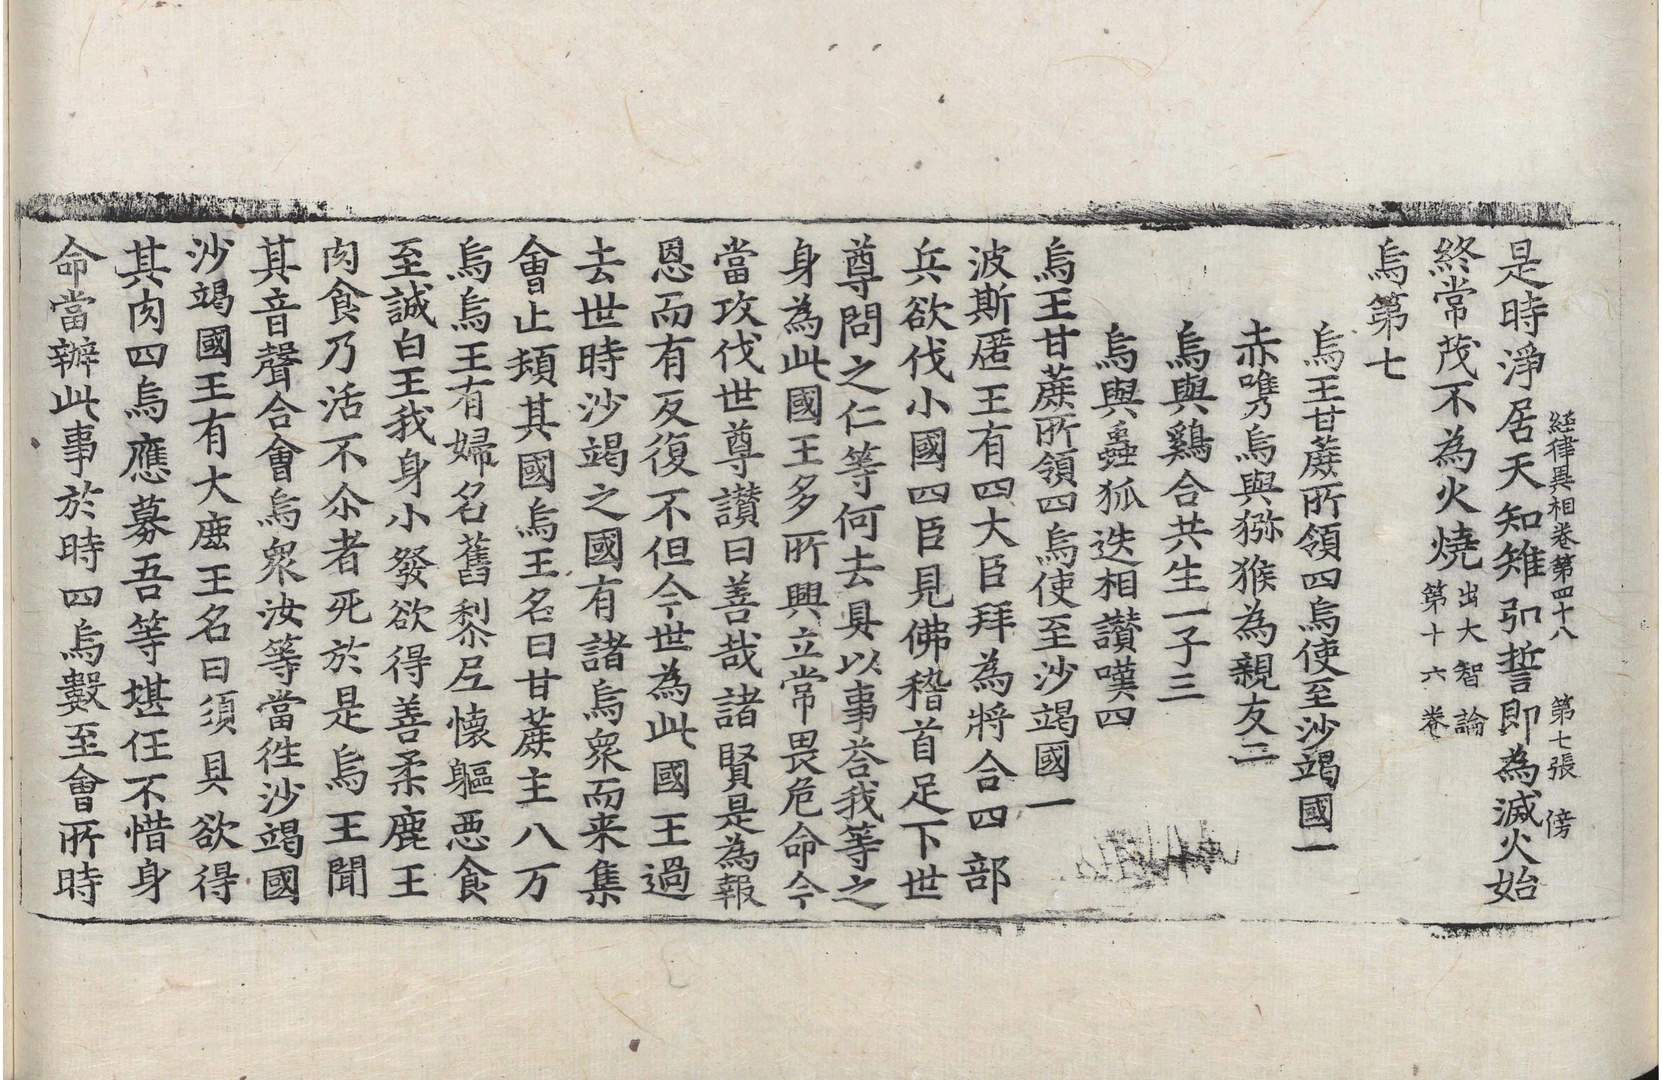 經律異相卷第四十八 第七張 傍
是時淨居天知雉引誓即為滅火始
終常茂不為火燒出大智論
第十六卷
烏第七
烏王甘蔗所領四烏使至沙竭國一
赤嘴烏與猕猴為親友二
烏與鷄合共生一子三
烏與蠱狐迭相讃嘆四
烏王甘蔗所領四烏使至沙竭國一
波斯匿王有四大臣拜為將合四部
兵欲伐小國四臣見佛稽首足下世
尊問之仁等何去具以事荅我等之
身為此國王多所興立常畏危命今
當攻伐世尊讃曰善哉諸賢是為報
恩而有反復不但今世為此國王過
去世時沙竭之國有諸烏衆而来集
會止頬其國烏王名曰甘蔗主八万
烏烏王有婦名舊梨尼懷軀悪食
至誠白王我身小發欲得善柔鹿王
肉食乃活不尒者死於是烏王聞
其音聲合會烏衆汝等當徃沙竭國
沙竭國王有大鹿王名曰須具欲得
其肉四烏應募吾等堪任不惜身
命當辦此事於時四烏數至會所時